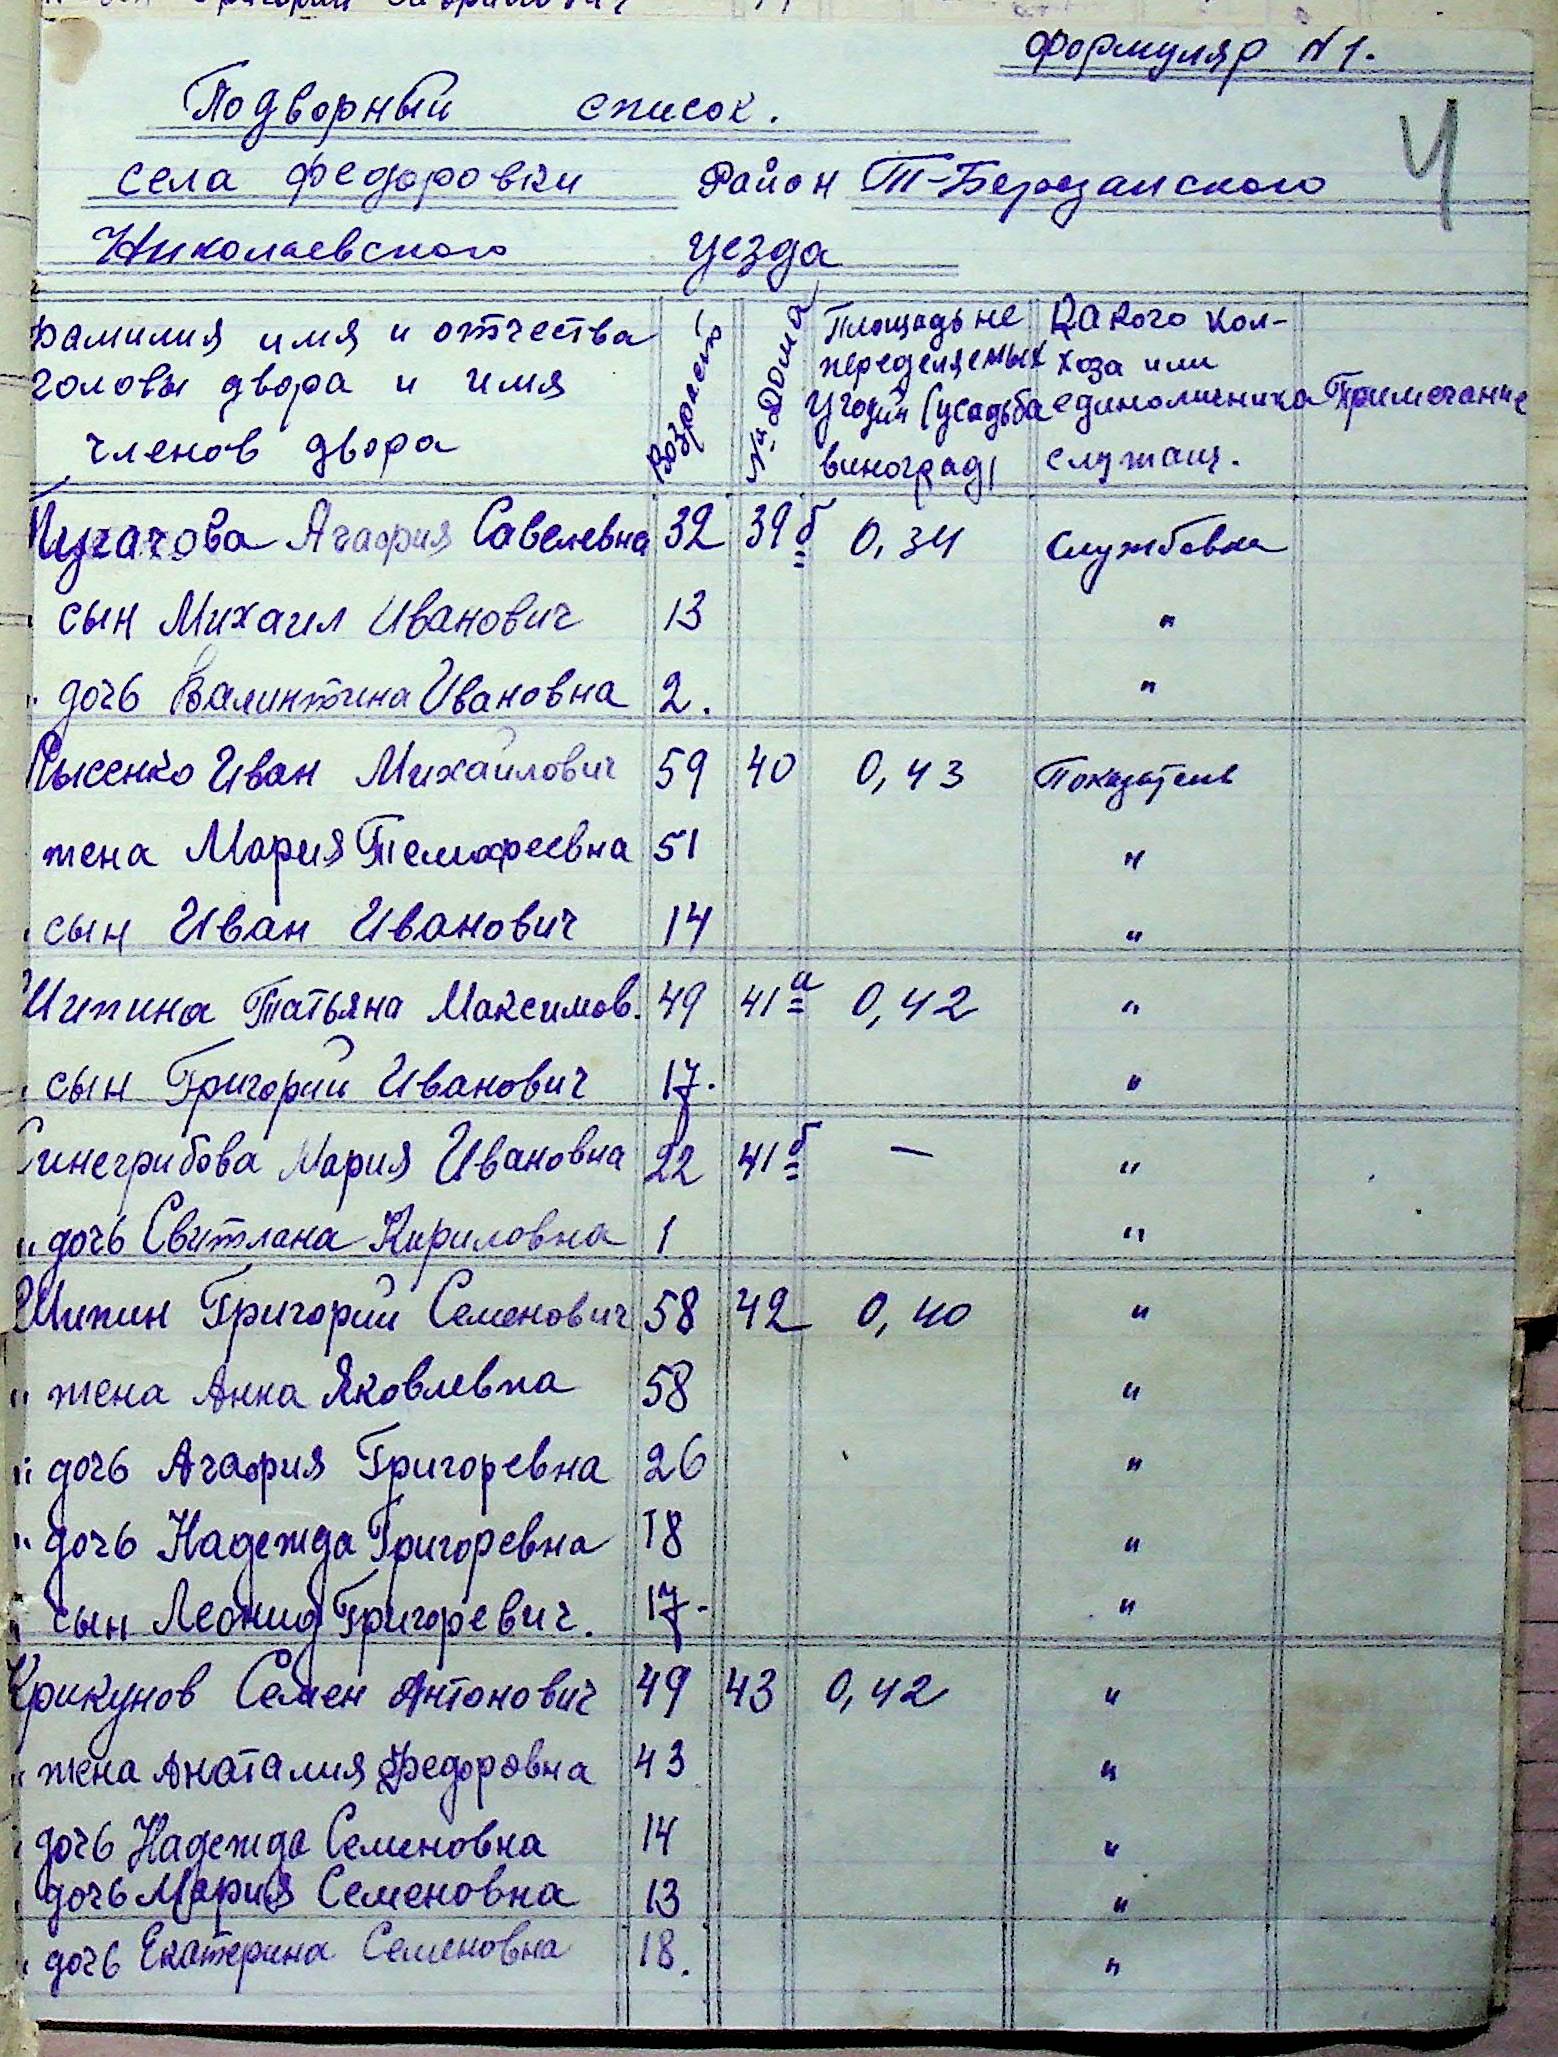 формуляр N 1.
4
Подворный список.
села Федоровки Район Т-Березанского
Николаевского уезда
Фамилия имя и отчества
головы двора и имя
членов двора
Возраст
№ Дома
Площадь не
переделяемых
угодий (усадьба
виноград)
Какого кол-
хоза или
единоличника
служащ.
Примечание
Пугачова Агафия Савелевна 32 39 б 0,34 Службовка
сын Михаил Иванович 13 "
" дочь Валинтина Ивановна 2. "
Лысенко Иван Михайлович 59 40 0,43 Показатель
жена Мария Темофеевна 51 "
сын Иван Иванович 14 "
Шипина Татьяна Максимов. 49 41 а 0,42 "
" сын Григорий Иванович 17. "
Синегрибова Мария Ивановна 22 41 б — "
" дочь Свитлана Кириловна 1 "
Шипин Григорий Семенович 58 42 0,40 "
" жена Анна Яковлевна 58 "
" дочь Агафия Григоревна 26 "
" дочь Надежда Григоревна 18 "
" сын Леонид Григоревич. 17. "
Крикунов Семен Антонович 49 43 0,42 "
" жена Анаталия Федоровна 43 "
" дочь Надежда Семеновна 14 "
" дочь Мария Семеновна 13 "
" дочь Екатерина Семеновна 18. "